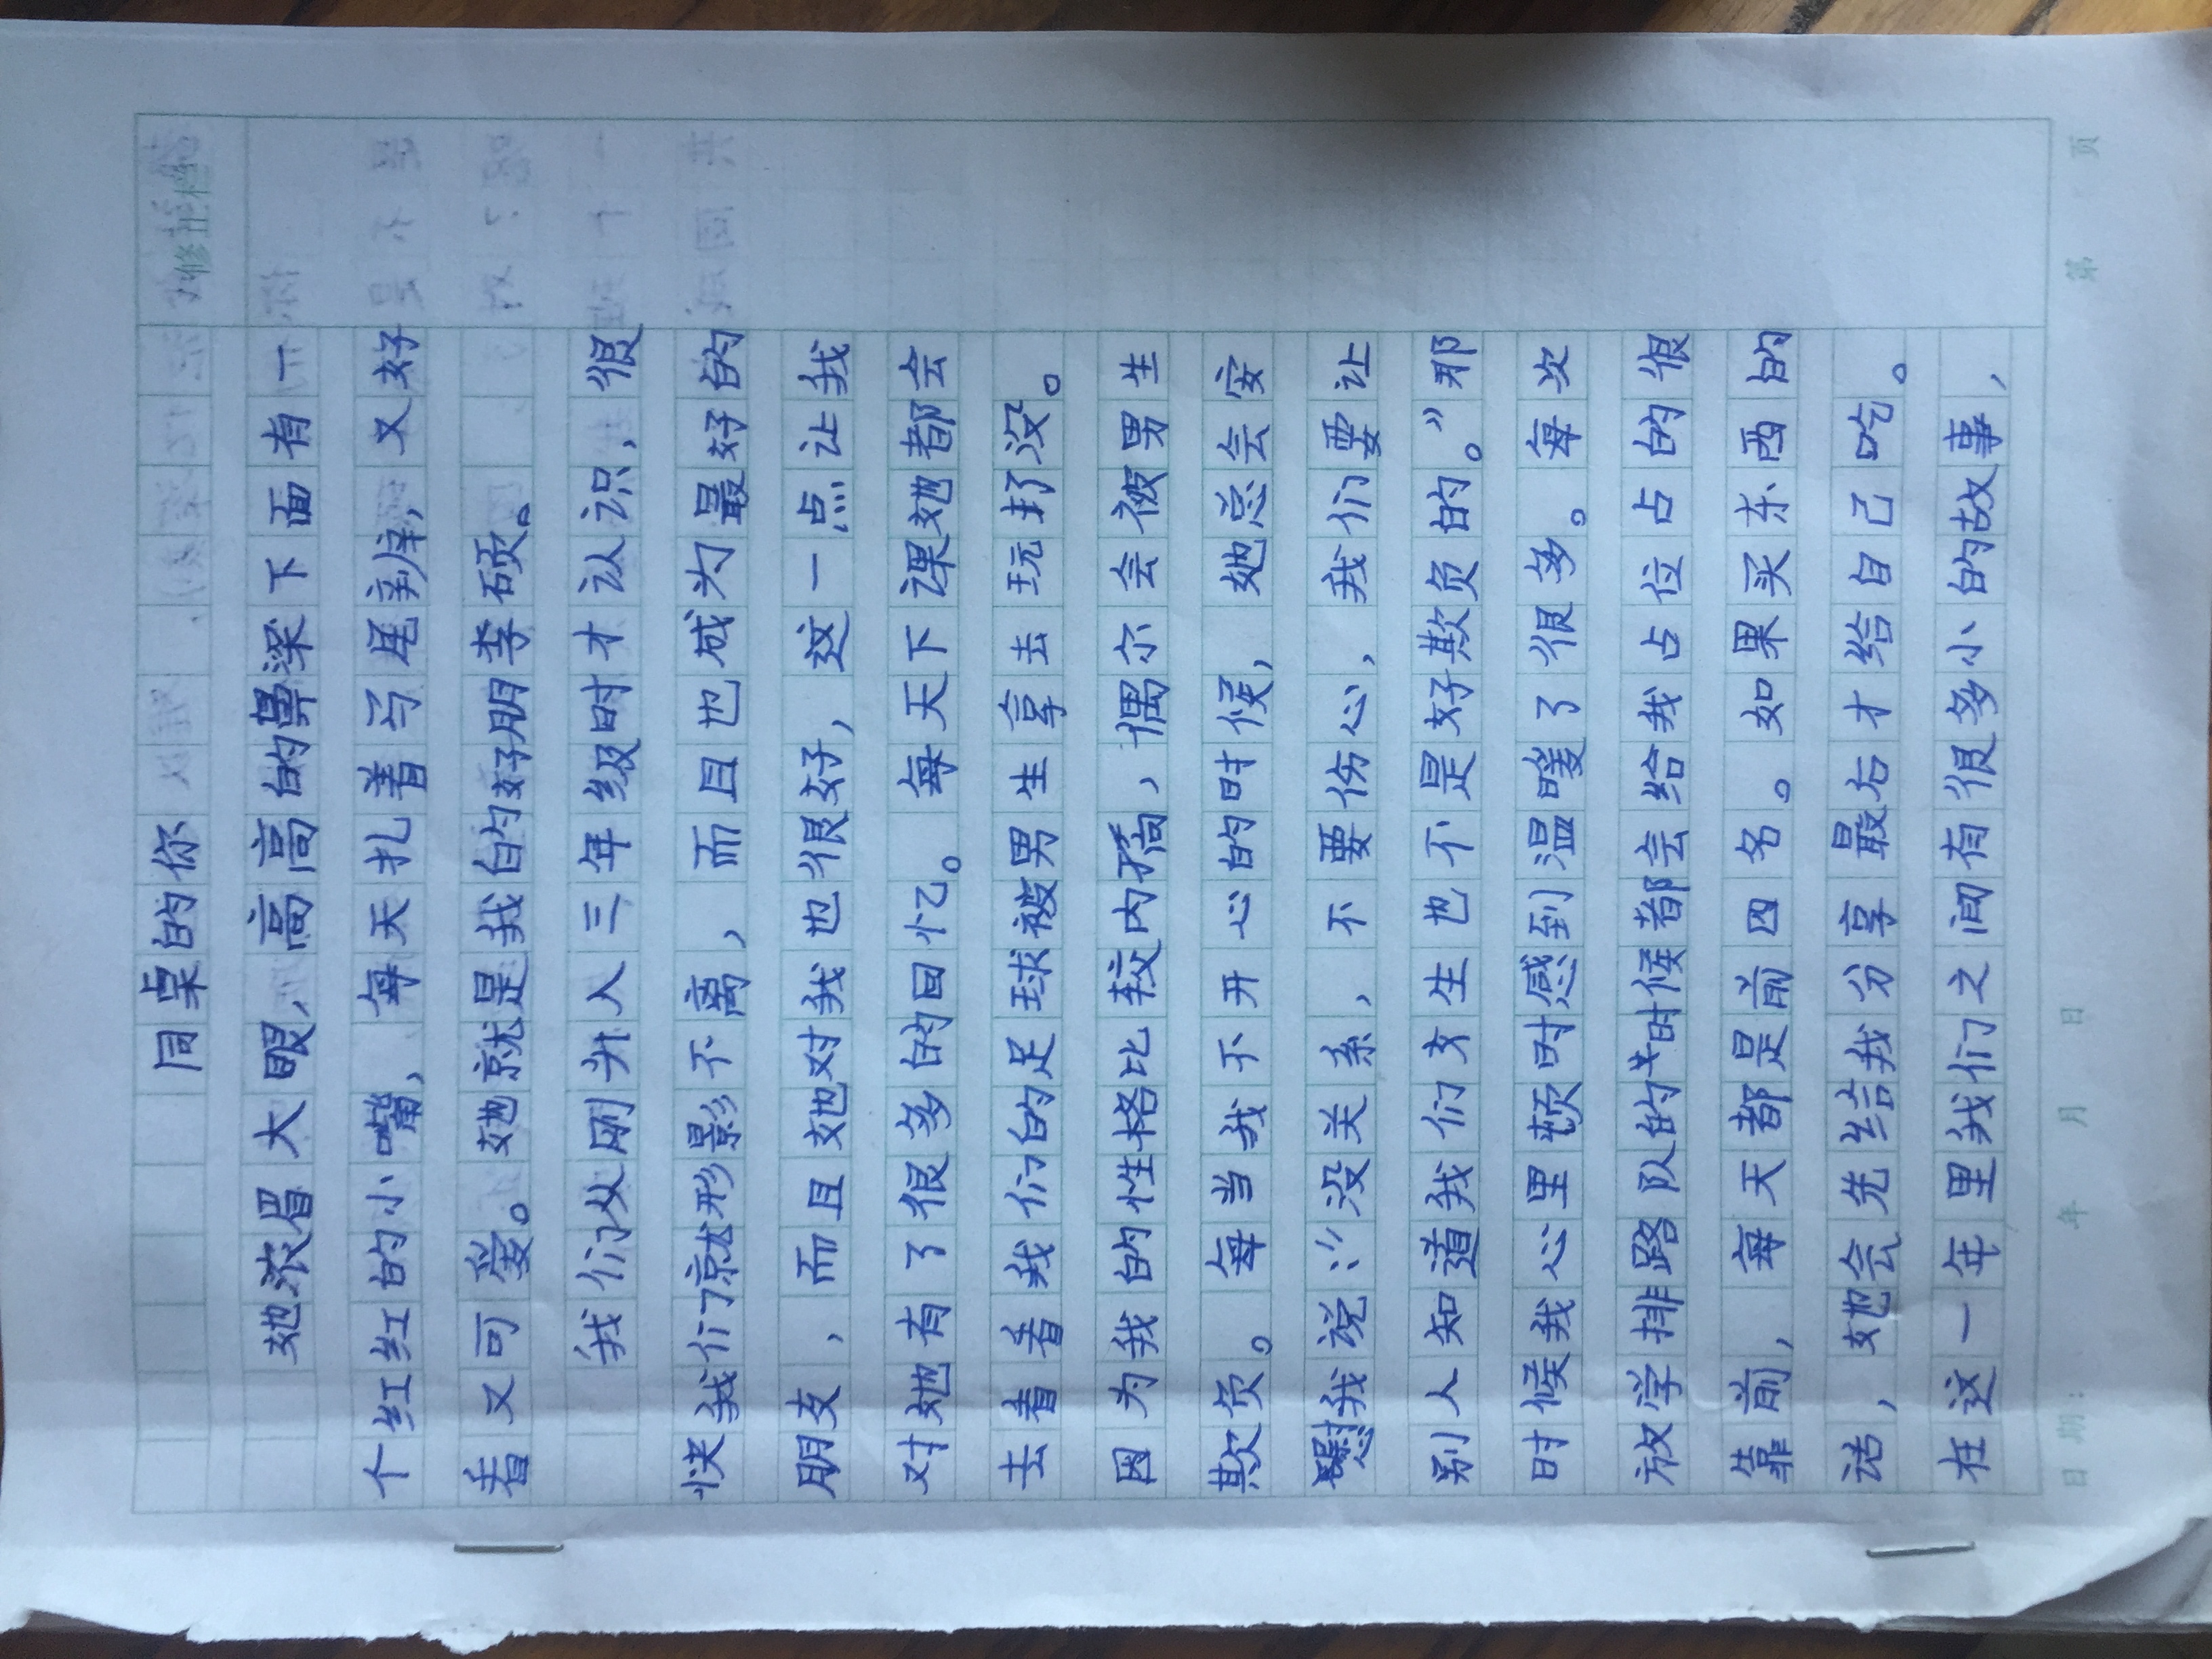 修正栏
同桌的你
她浓眉大眼，高高的鼻梁下面有一
个红红的小嘴，每天扎着马尾辫，又好
看又可爱。她就是我的好朋李硕。
我们从刚升入三年级时才认识，很
快我们就形影不离，而且也成为最好的
朋友，而且她对我也很好，这一点让我
对她有了很多的回忆。每天下课她都会
去看看我们的足球被男生拿去玩打没。
因为我的性格比较内矞，偶尔会被男生
欺负。每当我不开心的时候，她总会安
慰我说：“没关系，不要伤心，我们要让
别人知道我们女生也不是好欺负的。”那
时候我心里顿时感到温暖了很多。每次
放学排路队的时候都会给我占位占的很
靠前，每天都是前四名。如果买东西的
话，她会先给我分享最右才给自己吃。
在这一年里我们之间有很多小的故事，
日期： 年 月 日 第 页